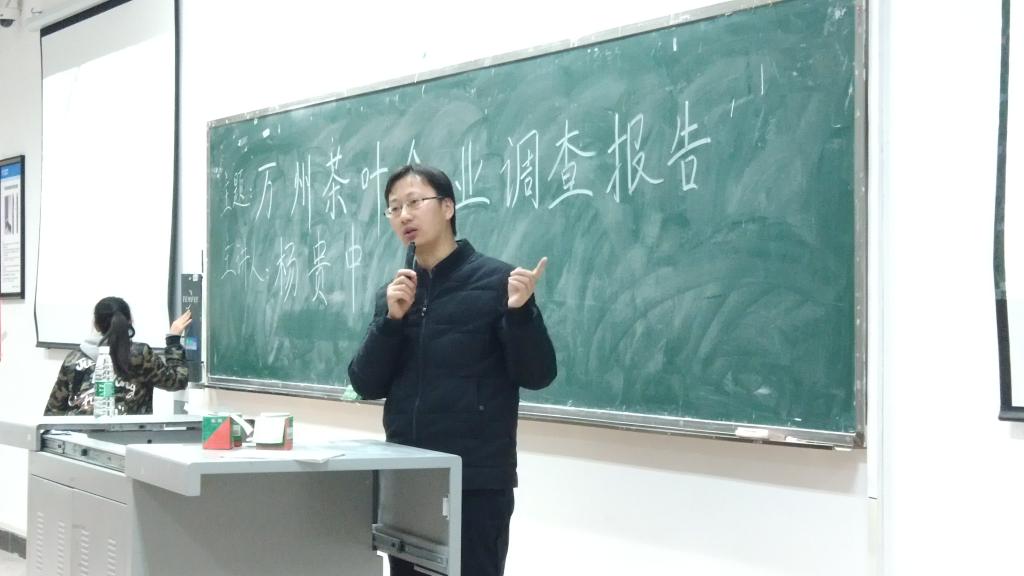 主题:万州茶叶企业调查报告
主讲人:杨贵中